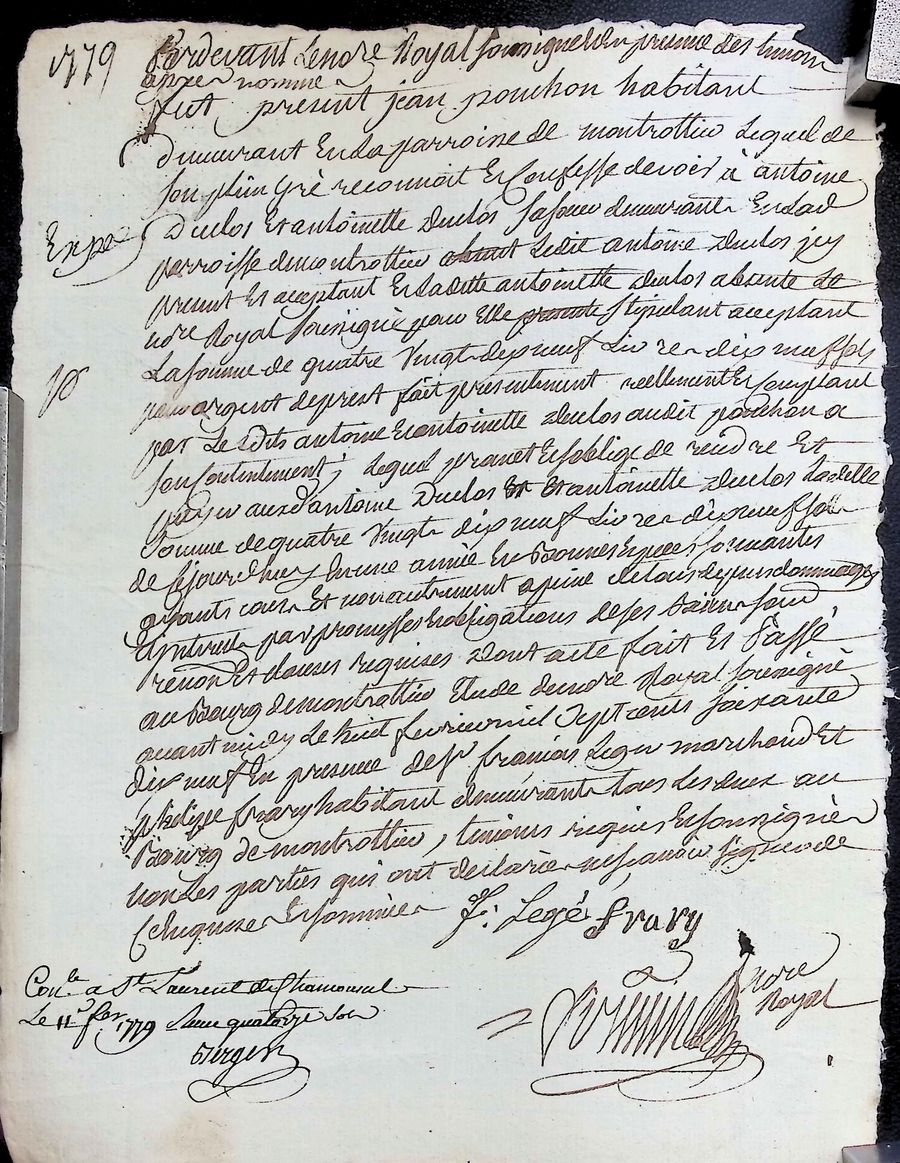 1779
Pardevant Le nore Royal soussigné et en presence des temoins
apres nommés
fut present jean pouchon habitant
demeurant En La parroisse de montrottier Lequel de
son plein gré reconnoit Et Confesse devoir à antoine
Duclos Et antoinette Duclos sa soeur demeurants En Lad
Exped
parroisse de montrottier absent Ledit antoine Duclos jcy
present Et acceptant Et Laditte antoinette Duclos absente Le
nore Royal soussigné pour Elle presente stipulant acceptant
La somme de quatre Vingt dix neuf Livres dix neuf sols
pour argent de prest fait presentement reellement Et Comptant
par Lesdits antoine Et antoinette Duclos audit pouchon a
son Contentement, Lequel promet Et soblige de rendre Et
payer auxd antoine Duclos Et Et antoinette Duclos Laditte
somme de quatre Vingt dix neuf Livres dix neuf sols
de ce jourdhuy En une année En Bonnes Especes sonnantes
ayants cours Et non autrement a peine de tous depens dommages
Et interets par promesses Et obligations de ses Biens soum
renon Et clauses requises Dont acte fait Et Passé
au Bourg de montrottier Etude du nore Royal soussigné
avant midy Le huit fevrier mil sept cents soixante
dix neuf En presence de sr francois Leger marchand Et
philippe frary habitant demeurants tous Les deux au
Bourg de montrottier, temoins requis Et soussignés
non Les parties qui ont declaré ne scavoir signer de
Ce Enquises Et sommées
f. Legé frary
nore
Royal
Conlé a St Laurent de Chamousset
Le 11 fer 1779 Reçu quatorze sols